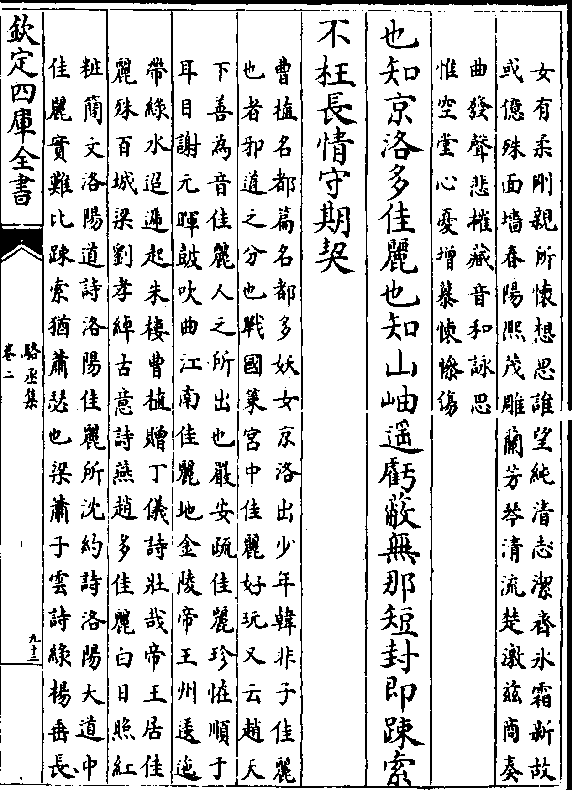 女有柔剛親所懷想思誰望純清志潔齊氷霜新故
或億殊面墻春陽熈茂雕蘭芳琴清流楚激兹商奏
曲發聲悲摧藏音和詠思
惟空堂心憂增慕懷慘傷
也知京洛多佳麗也知山岫遥虧蔽無那短封即踈索
不枉長情守期契
曹植名都篇名都多妖女京洛出少年韓非子佳麗
也者邪道之分也戰國策宫中佳麗好玩又云趙天
下善為音佳麗人之所出也嚴安疏佳麗珍恠順于
耳目謝元暉鼓吹曲江南佳麗地金陵帝王州逶迤
帶綠水迢遞起朱樓曹植贈丁儀詩壯哉帝王居佳
麗殊百城梁劉孝綽古意詩燕趙多佳麗白日照紅
粧簡文洛陽道詩洛陽佳麗所沈約詩洛陽大道中
佳麗實難比踈索猶蕭瑟也梁蕭子雲詩綠楊垂長
欽定四庫全書
駱丞集
卷二
九十三